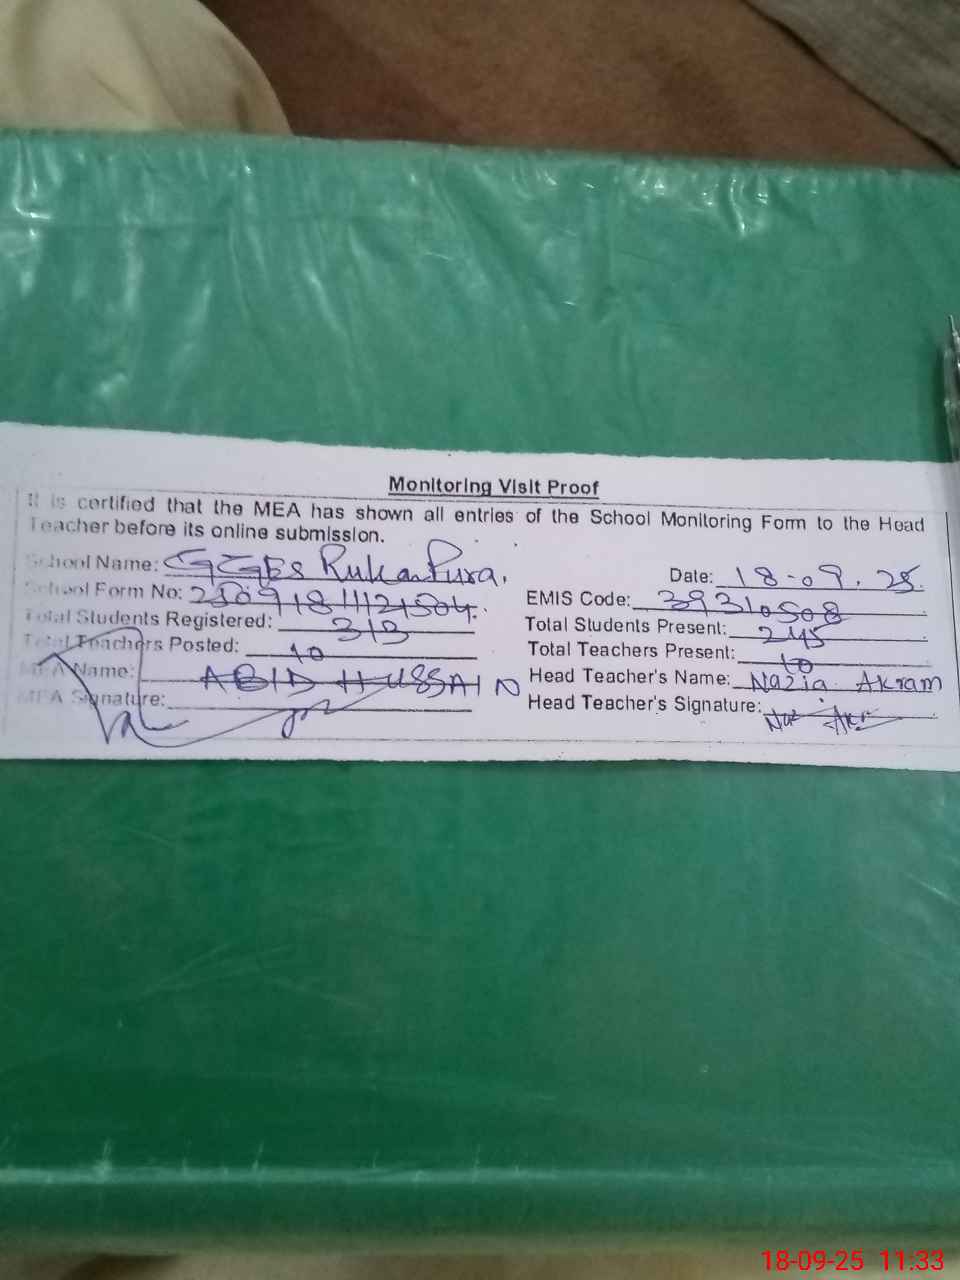 Monitoring Visit Proof
It is certified that the MEA has shown all entries of the School Monitoring Form to the Head
Teacher before its online submission.
School Name: GGES Rukan Pura.
Date: 18-09.25
School Form No:
EMIS Code: 39310508
Total Students Registered: 313
Total Students Present: 245
Total Teachers Posted: 10
Total Teachers Present: 10
MEA Name: ABID HUSSAIN
Head Teacher's Name: Nazia Akram
MEA Signature:
Head Teacher's Signature: Naz Akr
18-09-25 11:33